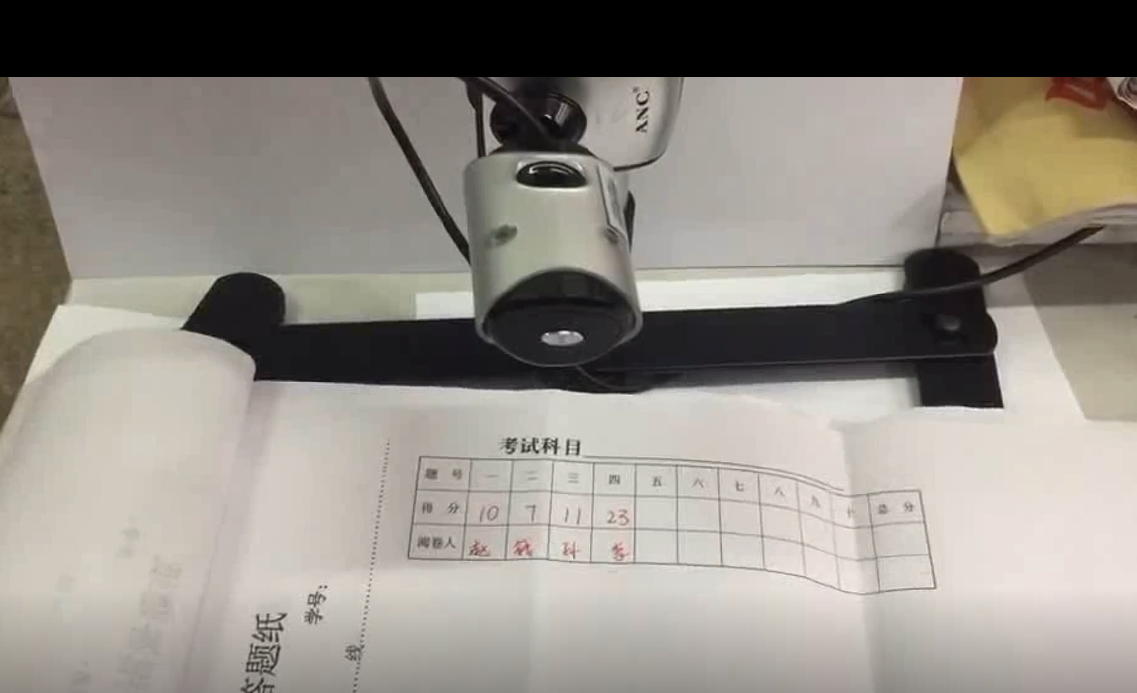 ANC®
考试科目
题 号 一 二 三 四 五 六 七 八 九 十 总 分
得 分 10 7 11 23
阅卷人 赵 钱 孙 李
学号:
线
答题纸